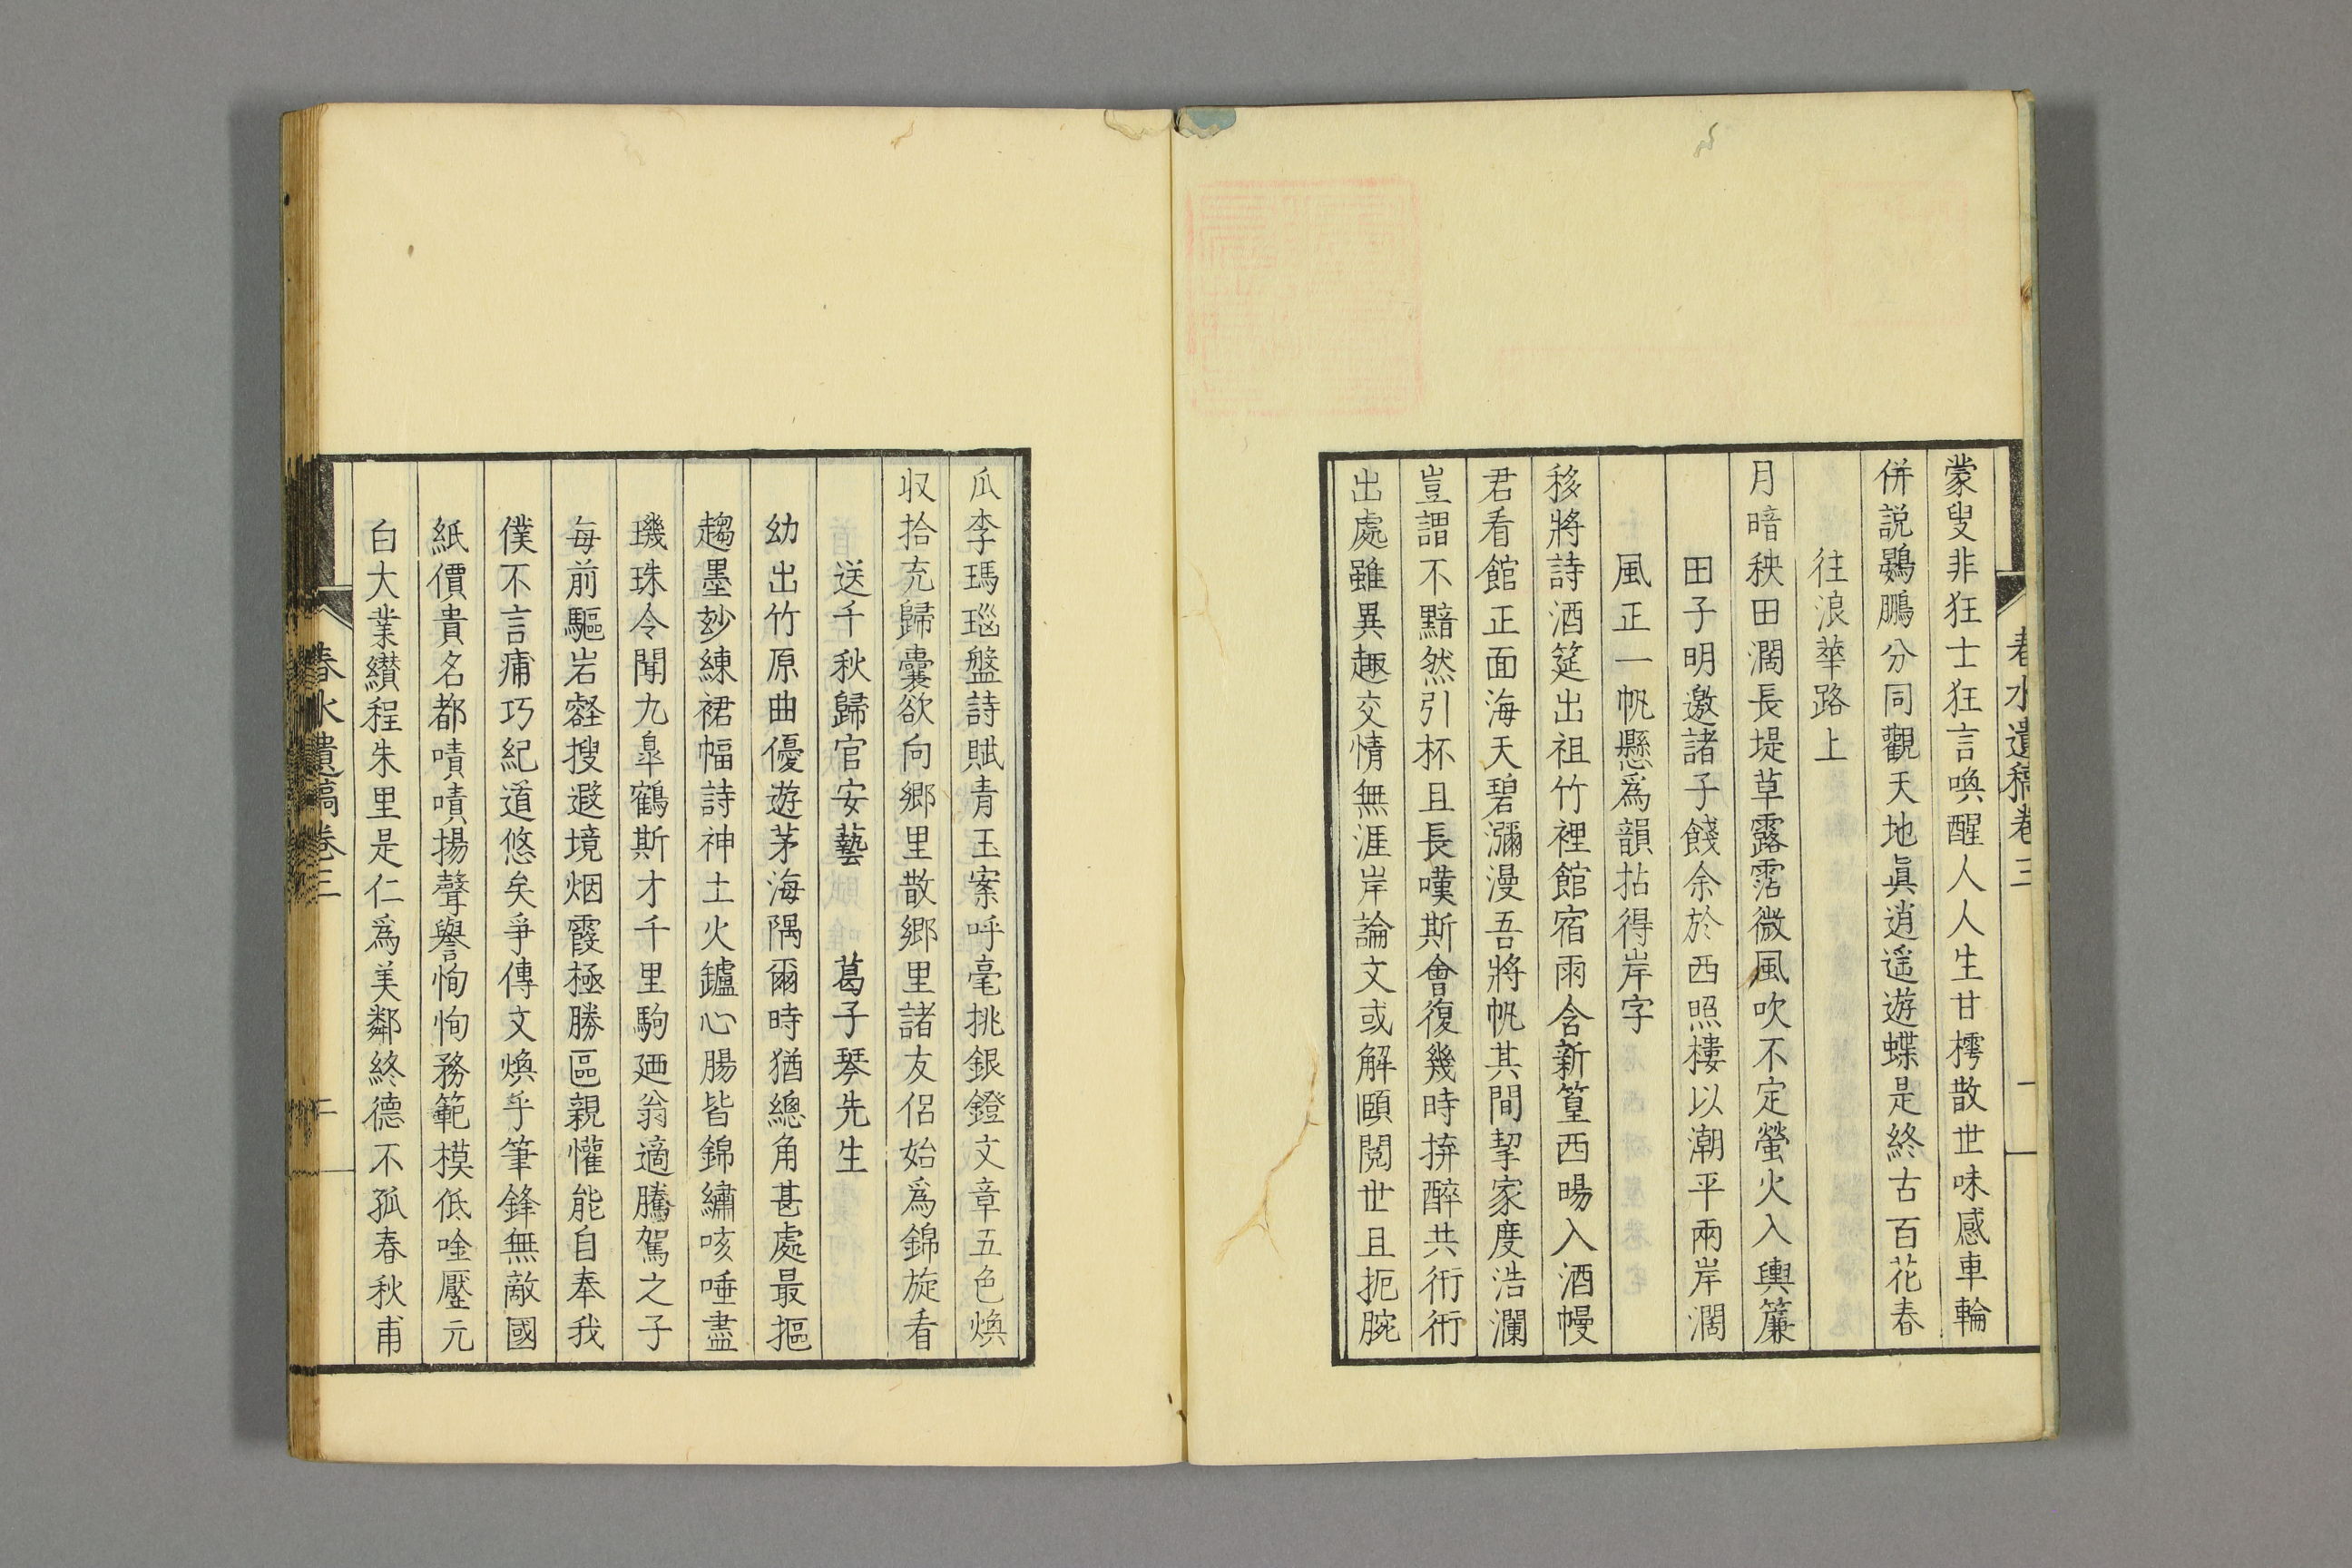 春水遺稿卷三
蒙叟非狂士狂言喚醒人人生甘樗散世味感車輪
併説鷃鵬分同觀天地眞逍遥遊蝶是終古百花春
往浪華路上
月暗秧田濶長堤草露霑微風吹不定螢火入輿簾
田子明邀諸子餞余於西照樓以潮平兩岸濶
風正一帆懸爲韻拈得岸字
移將詩酒筵出祖竹裡館宿雨含新篁西暘入酒幔
君看館正面海天碧瀰漫吾將帆其間挈家度浩瀾
豈謂不黯然引杯且長嘆斯會復幾時拚醉共衎衎
出處雖異趣交情無涯岸論文或解頤閲世且扼腕
瓜李瑪瑙盤詩賦青玉案呼毫挑銀鐙文章五色煥
収拾充歸囊欲向郷里散郷里諸友侶始爲錦旋看
送千秋歸官安藝　葛子琴先生
幼出竹原曲優遊茅海隅爾時猶總角甚處最摳
趨墨玅練裙幅詩神土火鑪心腸皆錦繡咳唾盡
璣珠令聞九臯鶴斯才千里駒廼翁適騰駕之子
毎前驅岩壑搜遐境烟霞極勝區親懽能自奉我
僕不言痡巧紀道悠矣爭傳文煥乎筆鋒無敵國
紙價貴名都嘖嘖揚聲譽恂恂務範模低唫壓元
白大業纉程朱里是仁爲美鄰終德不孤春秋甫
春水遺稿卷三
二